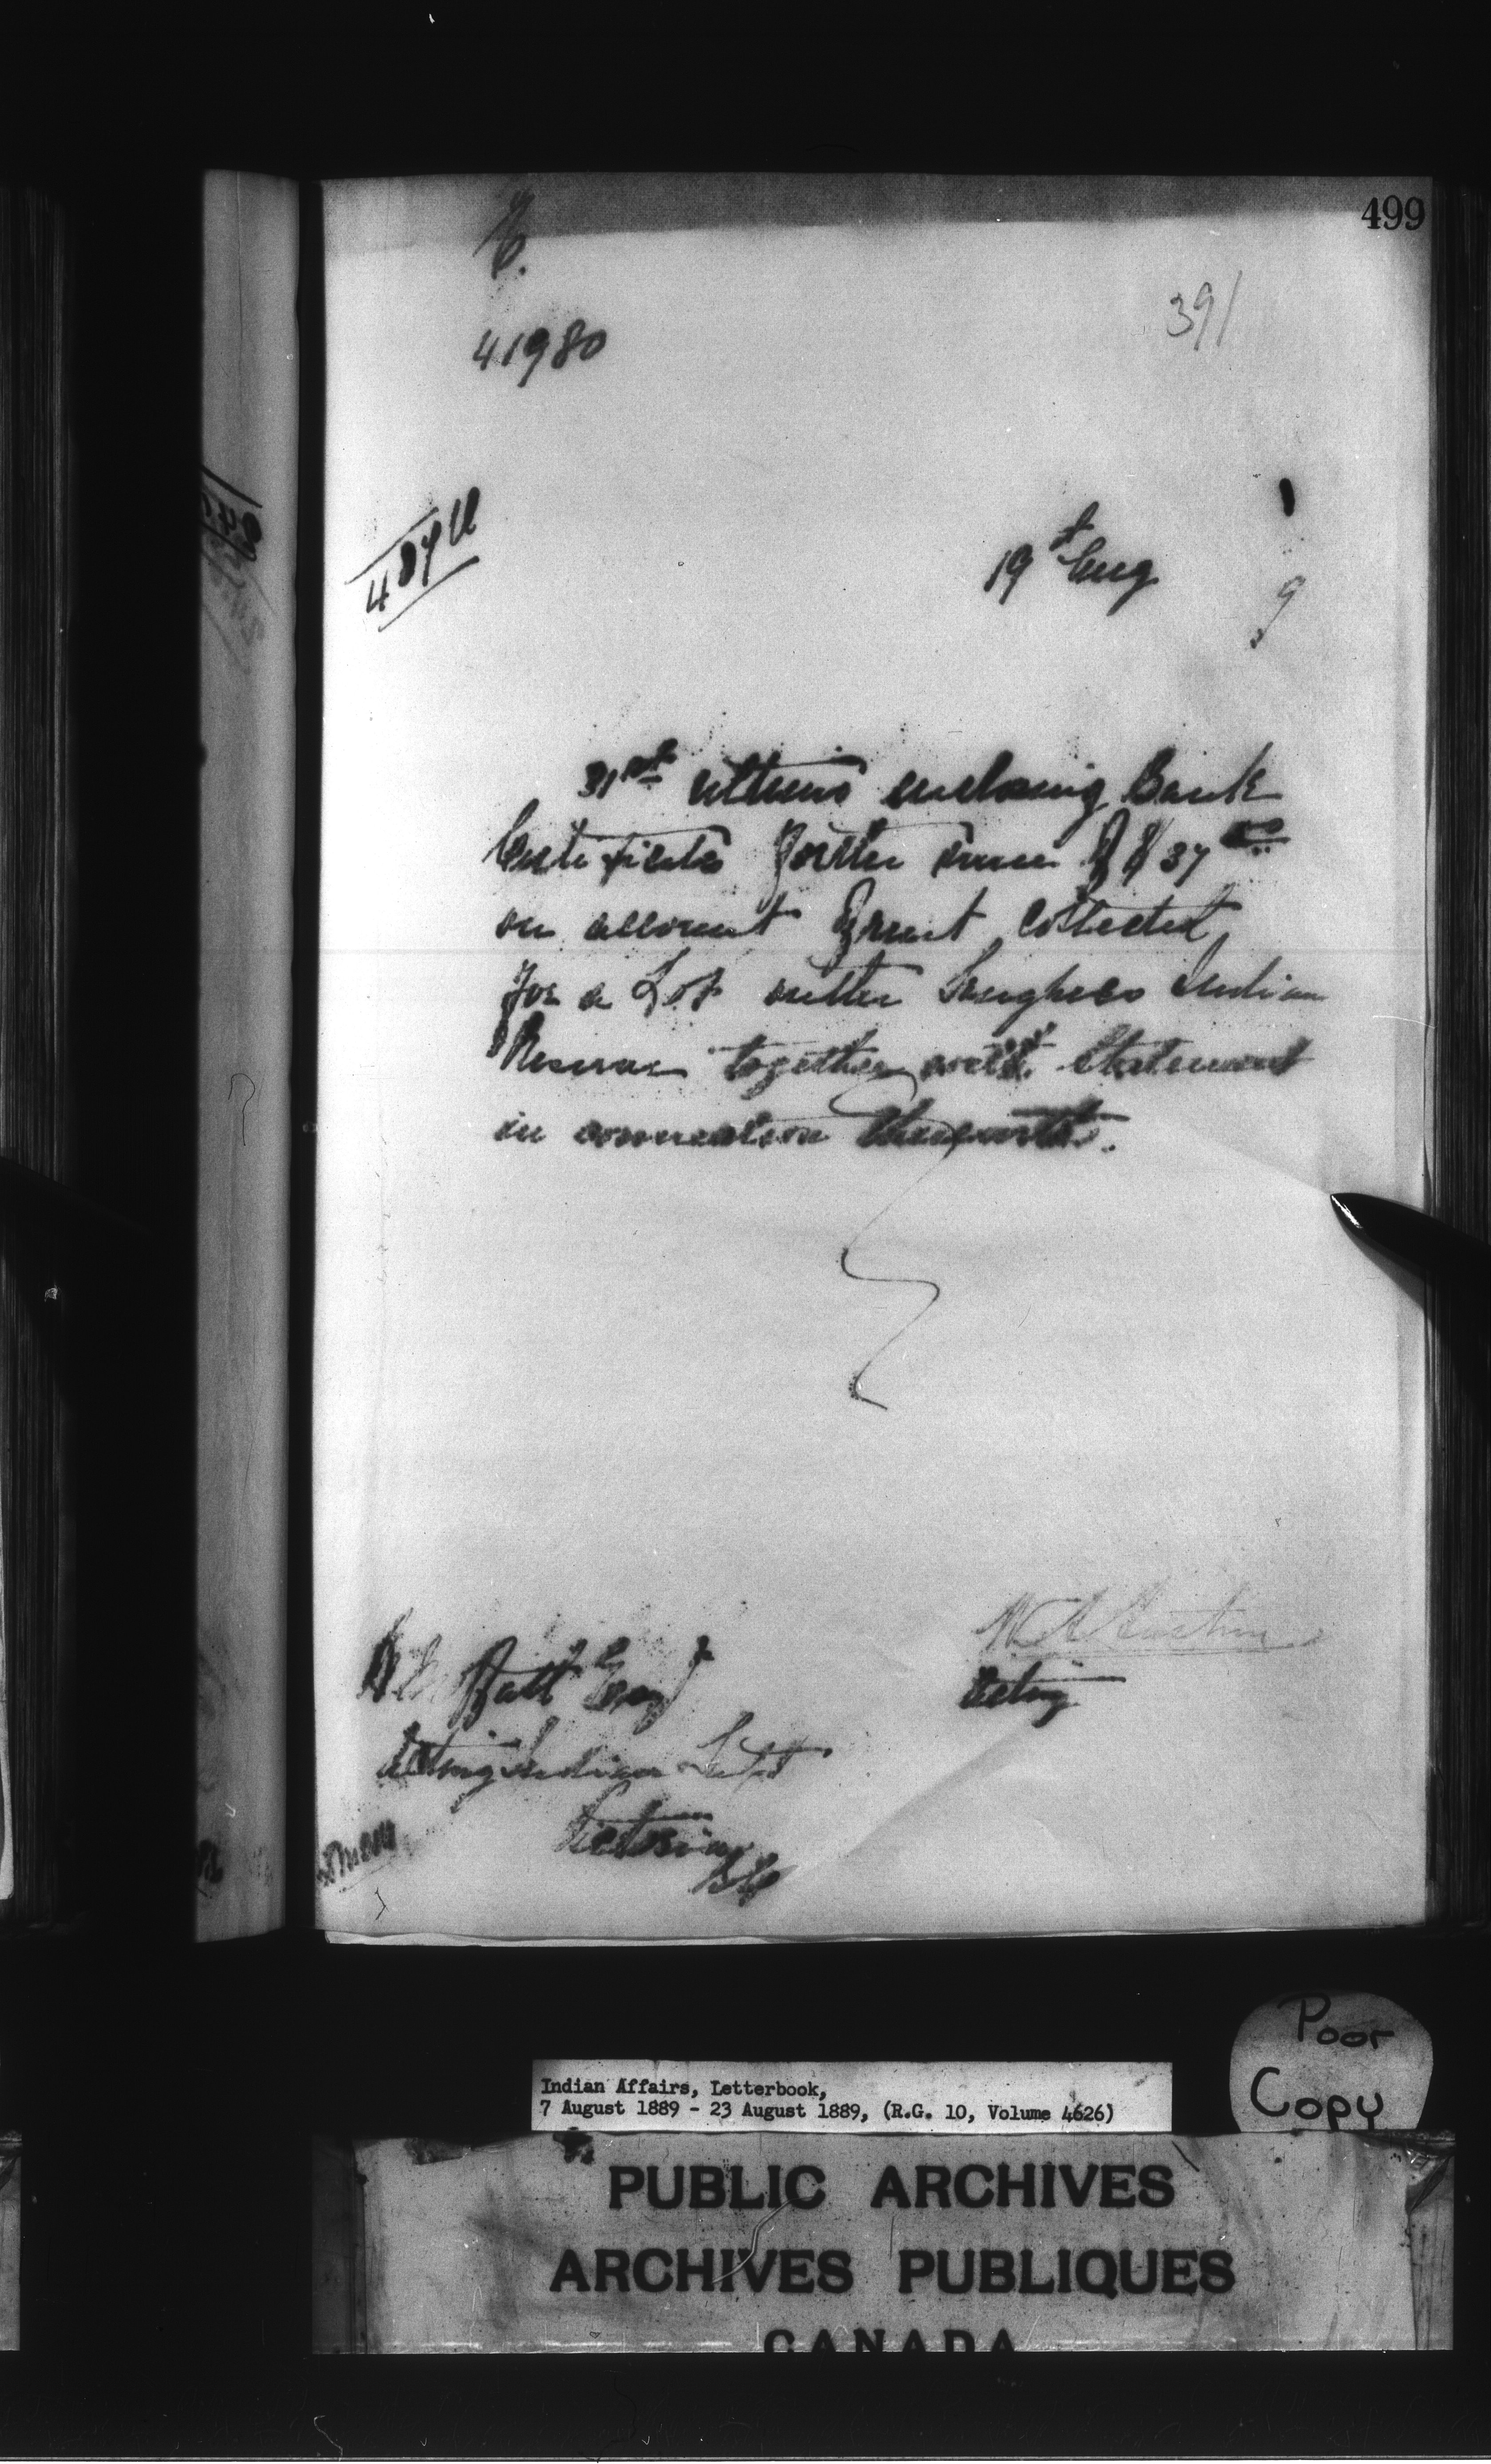 499
391
41980
19th Aug
9
31st ultimo enclosing Bank
Certificate for the sum of $37 00
on account of rent collected
for a Lot on the Songhees Indian
Reserve together with Statement
in connection therewith.
Moffatt Esqr
Acting Indian Supt
Victoria
BC
Acting
Indian Affairs, Letterbook,
7 August 1889 - 23 August 1889, (R.G. 10, Volume 4626)
Poor
Copy
PUBLIC ARCHIVES
ARCHIVES PUBLIQUES
CANADA